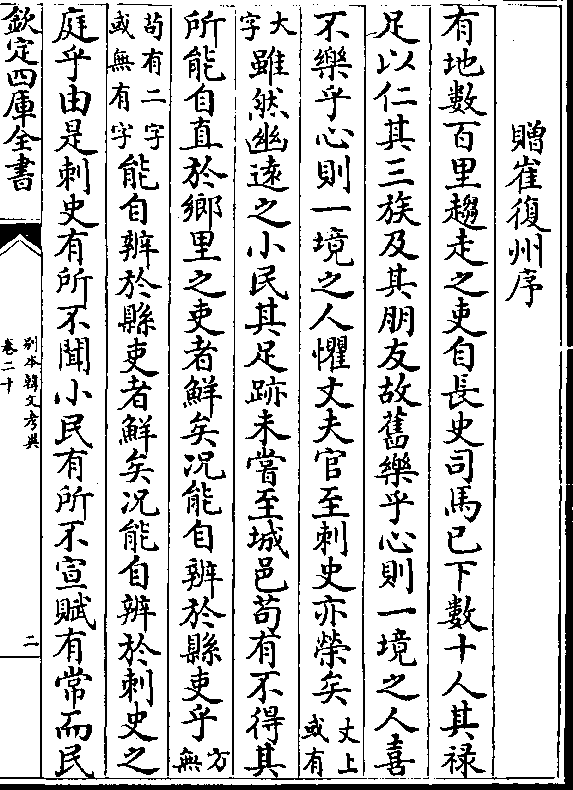 贈崔復州序
有地數百里趨走之吏自長史司馬已下數十人其祿
足以仁其三族及其朋友故舊樂乎心則一境之人喜
不樂乎心則一境之人懼丈夫官至刺史亦榮矣丈上或有
大字雖然幽遠之小民其足跡未嘗至城邑苟有不得其
所能自直於鄉里之吏者鮮矣況能自辨於縣吏乎方無
苟有二字或無有字能自辨於縣吏者鮮矣況能自辨於刺史之
庭乎由是刺史有所不聞小民有所不宣賦有常而民
欽定四庫全書
別本韓文考異
卷二十
二